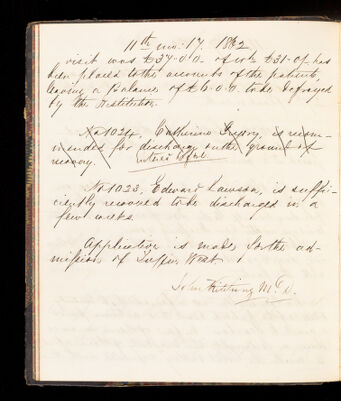 11th mo. 17. 1862
visit was £37-0-0. of wh £31-0/- has
been placed to the accounts of the patients,
leaving a Balance of £6-0-0 to be defrayed
by the Institution
No 1024, Catherine Gregory, is recom-
mended for discharge on the ground of
recovery.
No 1023, Edward Lawson, is suffi-
ciently recovered to be discharged in a
few weeks.
Application is made for the ad-
mission of West
John Kitching M.D.